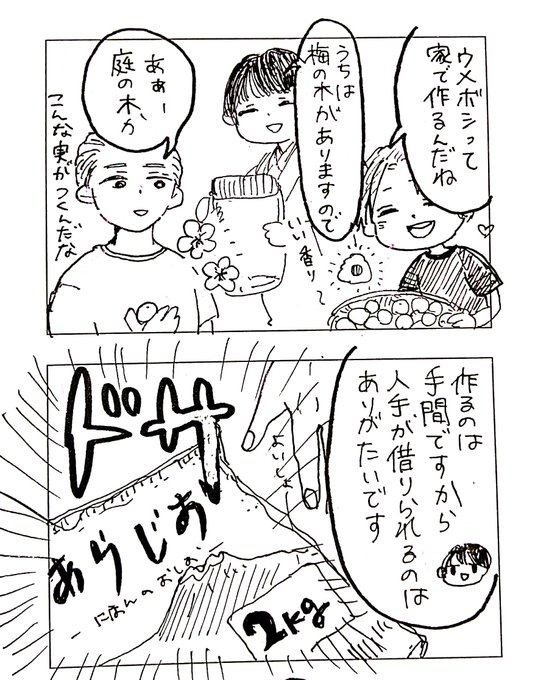 ウメボシって
家で作るんだね
うちは
梅の木がありますので
いい香り〜
あぁー
庭の木、か
こんな実がつくんだな
作るのは
手間ですから
人手が借りられるのは
ありがたいです
よいしょ
ドサ
あらじお
にほんのおしお
2kg